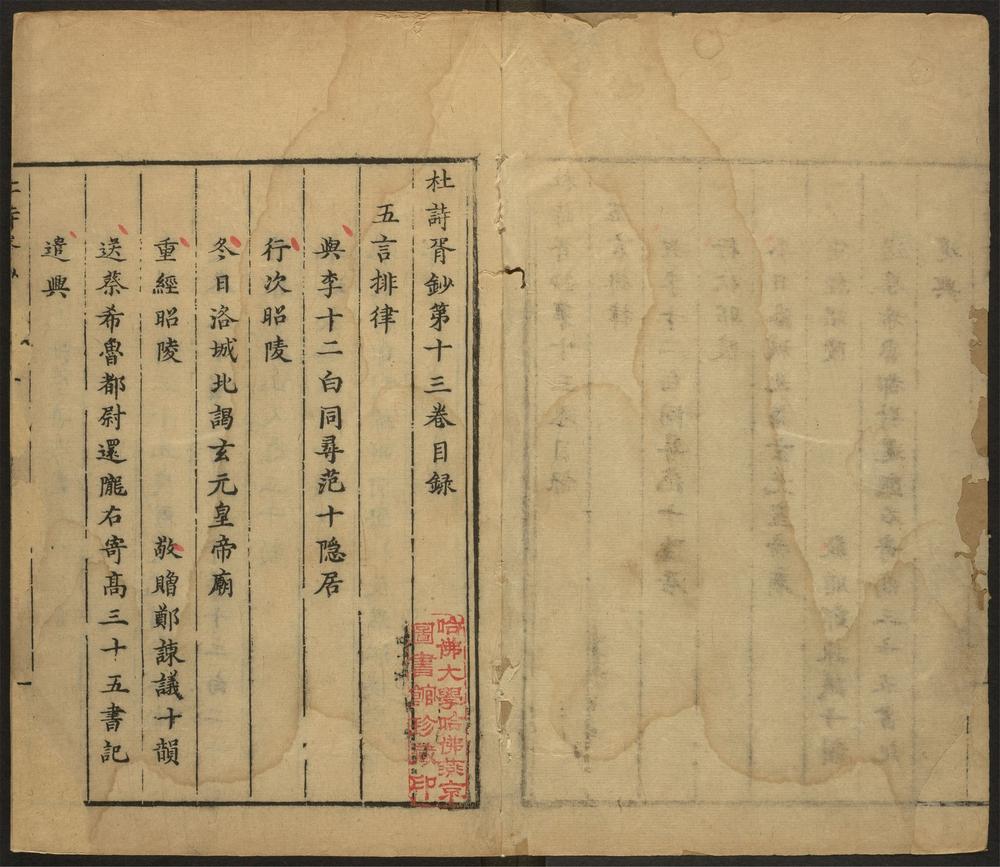 杜詩胥鈔第十三卷目録
五言排律
與李十二白同尋范十隱居
行次昭陵
冬日洛城北謁玄元皇帝廟
重經昭陵　敬贈鄭諫議十韻
送蔡希魯都尉還隴右寄高三十五書記
遣興
哈佛大學哈佛燕京
圖書館珍藏印